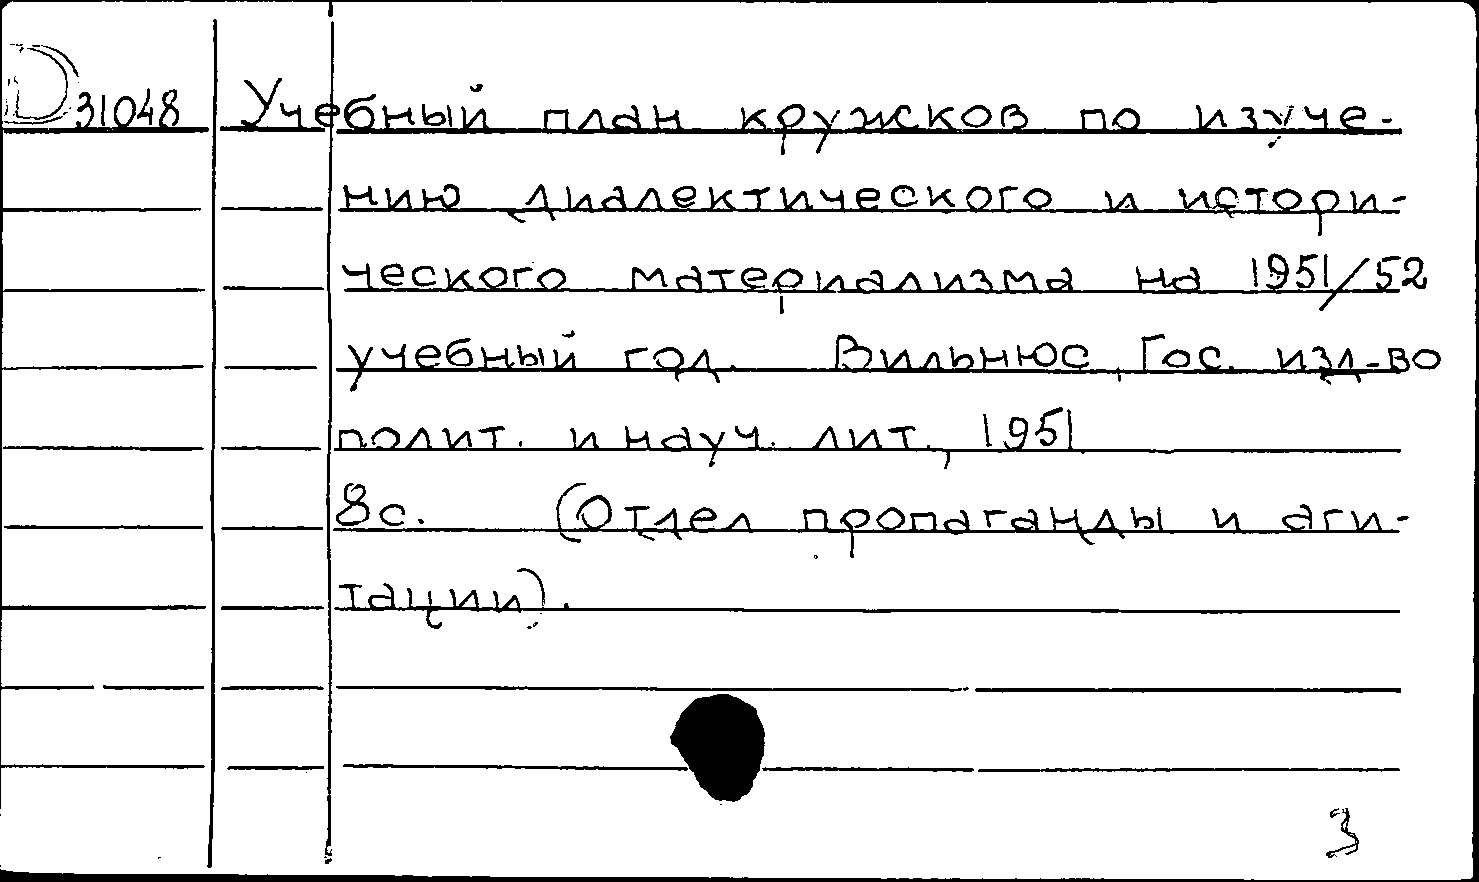 D 31048 Учебный план кружков по изуче-
нию диалектического и истори-
ческого материализма на 1951/52
учебный год. Вильнюс, Гос. изд-во
полит. и науч. лит., 1951
8 с. (Отдел пропаганды и аги-
тации).
3